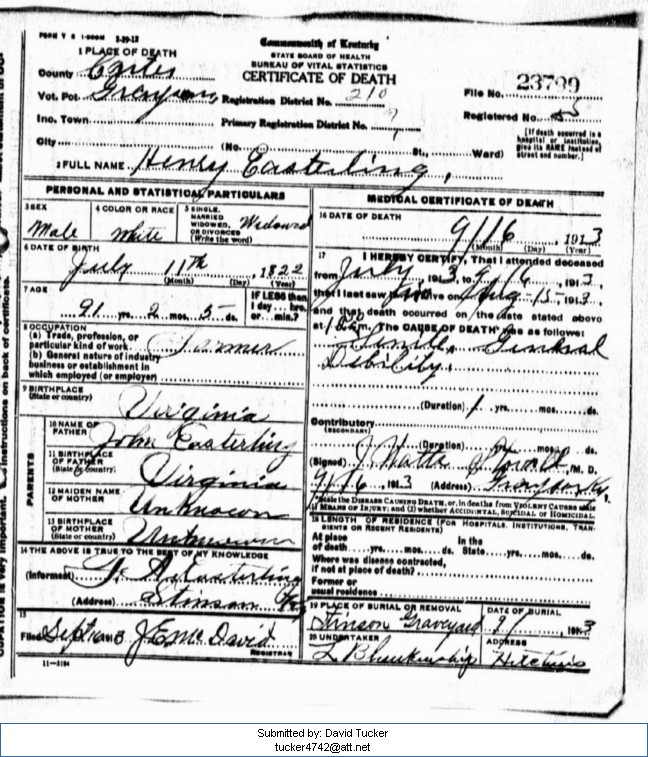 FORM V S 1-500M 3-20-12
Commonwealth of Kentucky
STATE BOARD OF HEALTH
BUREAU OF VITAL STATISTICS
CERTIFICATE OF DEATH
1 PLACE OF DEATH
County Carter
Vot. Pct. Grayson Registration District No. 210
File No. 23799
Inc. Town Primary Registration District No.
Registered No.
City (No. St., Ward)
[If death occurred in a hospital or institution, give its NAME instead of street and number.]
2 FULL NAME Henry Easterling,
PERSONAL AND STATISTICAL PARTICULARS
3 SEX Male
4 COLOR OR RACE White
5 SINGLE, MARRIED, WIDOWED, OR DIVORCED (Write the word) Widowed
6 DATE OF BIRTH July 11th, 1822
(Month) (Day) (Year)
7 AGE 91 yrs. 2 mos. 5 ds.
IF LESS than 1 day... hrs. or... min.?
8 OCCUPATION
(a) Trade, profession, or particular kind of work Farmer
(b) General nature of industry business or establishment in which employed (or employer)
9 BIRTHPLACE (State or country) Virginia
PARENTS
10 NAME OF FATHER John Easterling
11 BIRTHPLACE OF FATHER (State or country) Virginia
12 MAIDEN NAME OF MOTHER Unknown
13 BIRTHPLACE OF MOTHER (State or country) Unknown
14 THE ABOVE IS TRUE TO THE BEST OF MY KNOWLEDGE
(Informant) Easterling
(Address) Stinson Ky
15
Filed Sept 16 13 J E McDavid
REGISTRAR
11-3184
MEDICAL CERTIFICATE OF DEATH
16 DATE OF DEATH
9/16, 1913
(Month) (Day) (Year)
17 I HEREBY CERTIFY, That I attended deceased
from July, 1913, to 9/16, 1913,
that I last saw him alive on Aug 15, 1913,
and that death occurred on the date stated above
at m. The CAUSE OF DEATH was as follows:
Senile, General
Debility.
(Duration) 1 yrs. mos. ds.
Contributory
(SECONDARY)
(Duration) yrs. mos. ds.
(Signed) J Watts M. D.
9/16, 1913 (Address) Grayson Ky
State the DISEASE CAUSING DEATH, or, in deaths from VIOLENT CAUSES state (1) MEANS OF INJURY; and (2) whether ACCIDENTAL, SUICIDAL or HOMICIDAL.
18 LENGTH OF RESIDENCE (FOR HOSPITALS, INSTITUTIONS, TRANSIENTS OR RECENT RESIDENTS)
At place of death yrs. mos. ds. In the State yrs. mos. ds.
Where was disease contracted, if not at place of death?
Former or usual residence
19 PLACE OF BURIAL OR REMOVAL Stinson Graveyard
DATE OF BURIAL 9/ 1913
20 UNDERTAKER L Blankenship
ADDRESS Hitchins
Submitted by: David Tucker
tucker4742@att.net